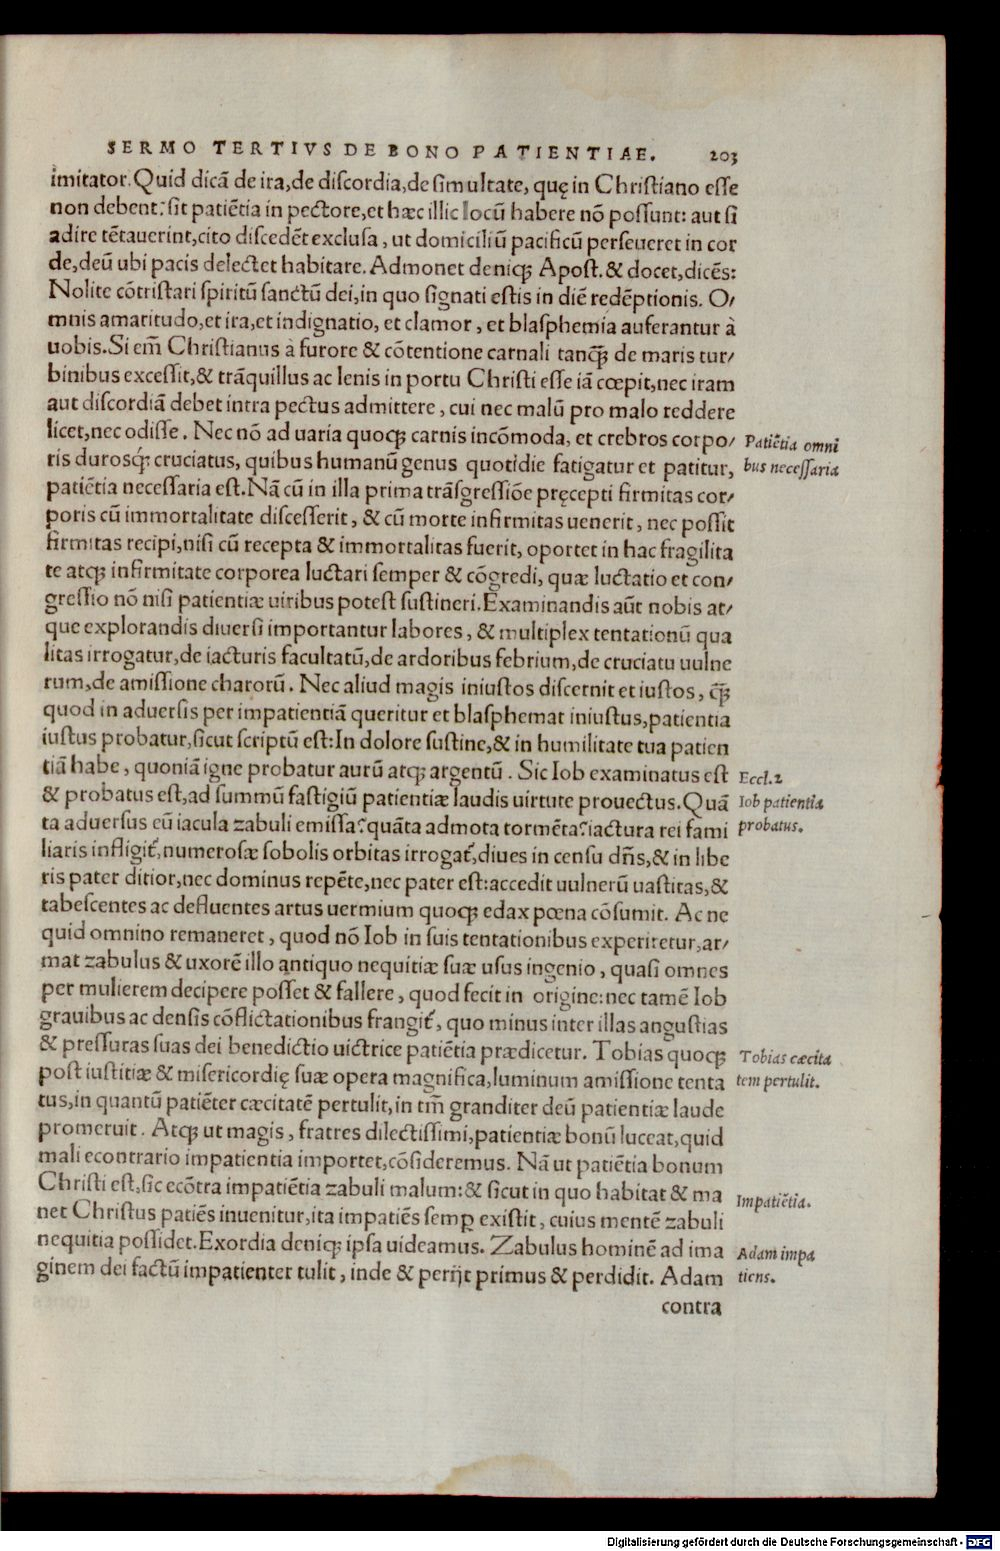 SERMO TERTIVS DE BONO PATIENTIAE. 203
imitator. Quid dicā de ira, de discordia, de simultate, quę in Christiano esse
non debent? sit patiētia in pectore, et hæc illic locū habere nō possunt: aut si
adire tētauerint, cito discedēt exclusa, ut domiciliū pacificū perseueret in cor
de, deū ubi pacis delectet habitare. Admonet deniqꝫ Apost. & docet, dicēs:
Nolite cōtristari spiritū sanctū dei, in quo signati estis in diē redēptionis. O/
mnis amaritudo, et ira, et indignatio, et clamor, et blasphemia auferantur à
uobis. Si em̄ Christianus à furore & cōtentione carnali tanꝗ̄ de maris tur/
binibus excessit, & trāquillus ac lenis in portu Christi esse iā cœpit, nec iram
aut discordiā debet intra pectus admittere, cui nec malū pro malo reddere
licet, nec odisse. Nec nō ad uaria quoqꝫ carnis incōmoda, et crebros corpo/
Patiētia omni
ris durosqꝫ cruciatus, quibus humanū genus quotidie fatigatur et patitur,
bus necessaria
patiētia necessaria est. Nā cū in illa prima trāsgressiōe pręcepti firmitas cor/
poris cū immortalitate discesserit, & cū morte infirmitas uenerit, nec possit
firmitas recipi, nisi cū recepta & immortalitas fuerit, oportet in hac fragilita
te atqꝫ infirmitate corporea luctari semper & cōgredi, quæ luctatio et con/
gressio nō nisi patientiæ uiribus potest sustineri. Examinandis aūt nobis at/
que explorandis diuersi importantur labores, & multiplex tentationū qua
litas irrogatur, de iacturis facultatū, de ardoribus febrium, de cruciatu uulne
rum, de amissione charorū. Nec aliud magis iniustos discernit et iustos, ꝗ̄
quod in aduersis per impatientiā queritur et blasphemat iniustus, patientia
iustus probatur, sicut scriptū est: In dolore sustine, & in humilitate tua patien
tiā habe, quoniā igne probatur aurū atqꝫ argentū. Sic Iob examinatus est
Eccl. 2
& probatus est, ad summū fastigiū patientiæ laudis uirtute prouectus. Quā
Iob patientia
ta aduersus eū iacula zabuli emissa? quāta admota tormēta? iactura rei fami
probatus.
liaris infligit᷑, numerosæ sobolis orbitas irrogat᷑, diues in censu dn̄s, & in libe
ris pater ditior, nec dominus repēte, nec pater est: accedit uulnerū uastitas, &
tabescentes ac defluentes artus uermium quoqꝫ edax pœna cōsumit. Ac ne
quid omnino remaneret, quod nō Iob in suis tentationibus experiretur, ar/
mat zabulus & uxorē illo antiquo nequitiæ suæ usus ingenio, quasi omnes
per mulierem decipere posset & fallere, quod fecit in origine: nec tamē Iob
grauibus ac densis cōflictationibus frangit᷑, quo minus inter illas angustias
& pressuras suas dei benedictio uictrice patiētia prædicetur. Tobias quoqꝫ
Tobias cæcita
post iustitiæ & misericordię suæ opera magnifica, luminum amissione tenta
tem pertulit.
tus, in quantū patiēter cæcitatē pertulit, in tm̄ granditer deū patientiæ laude
promeruit. Atqꝫ ut magis, fratres dilectissimi, patientiæ bonū luceat, quid
mali econtrario impatientia importet, cōsideremus. Nā ut patiētia bonum
Christi est, sic ecōtra impatiētia zabuli malum: & sicut in quo habitat & ma
Impatiētia.
net Christus patiēs inuenitur, ita impatiēs semꝑ existit, cuius mentē zabuli
nequitia possidet. Exordia deniqꝫ ipsa uideamus. Zabulus hominē ad ima
Adam impa
ginem dei factū impatienter tulit, inde & perijt primus & perdidit. Adam
tiens.
contra
Digitalisierung gefördert durch die Deutsche Forschungsgemeinschaft - DFG